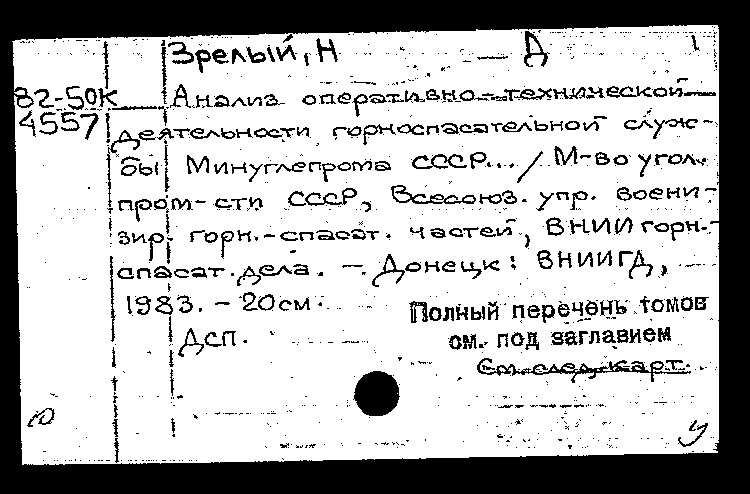 Зрелый, Н Д 1
82-50К Анализ оперативно-технической
4557 деятельности горноспасательной служ-
бы Минуглепрома СССР... / М-во угол.
пром-сти СССР, Всесоюз. упр. воени-
зир. горн.-спасат. частей, ВНИИ горн.-
спасат. дела. — Донецк: ВНИИГД,
1983. - 20 см.
Полный перечень томов
ДСП. см. под заглавием
См. след. карт.
Ю У